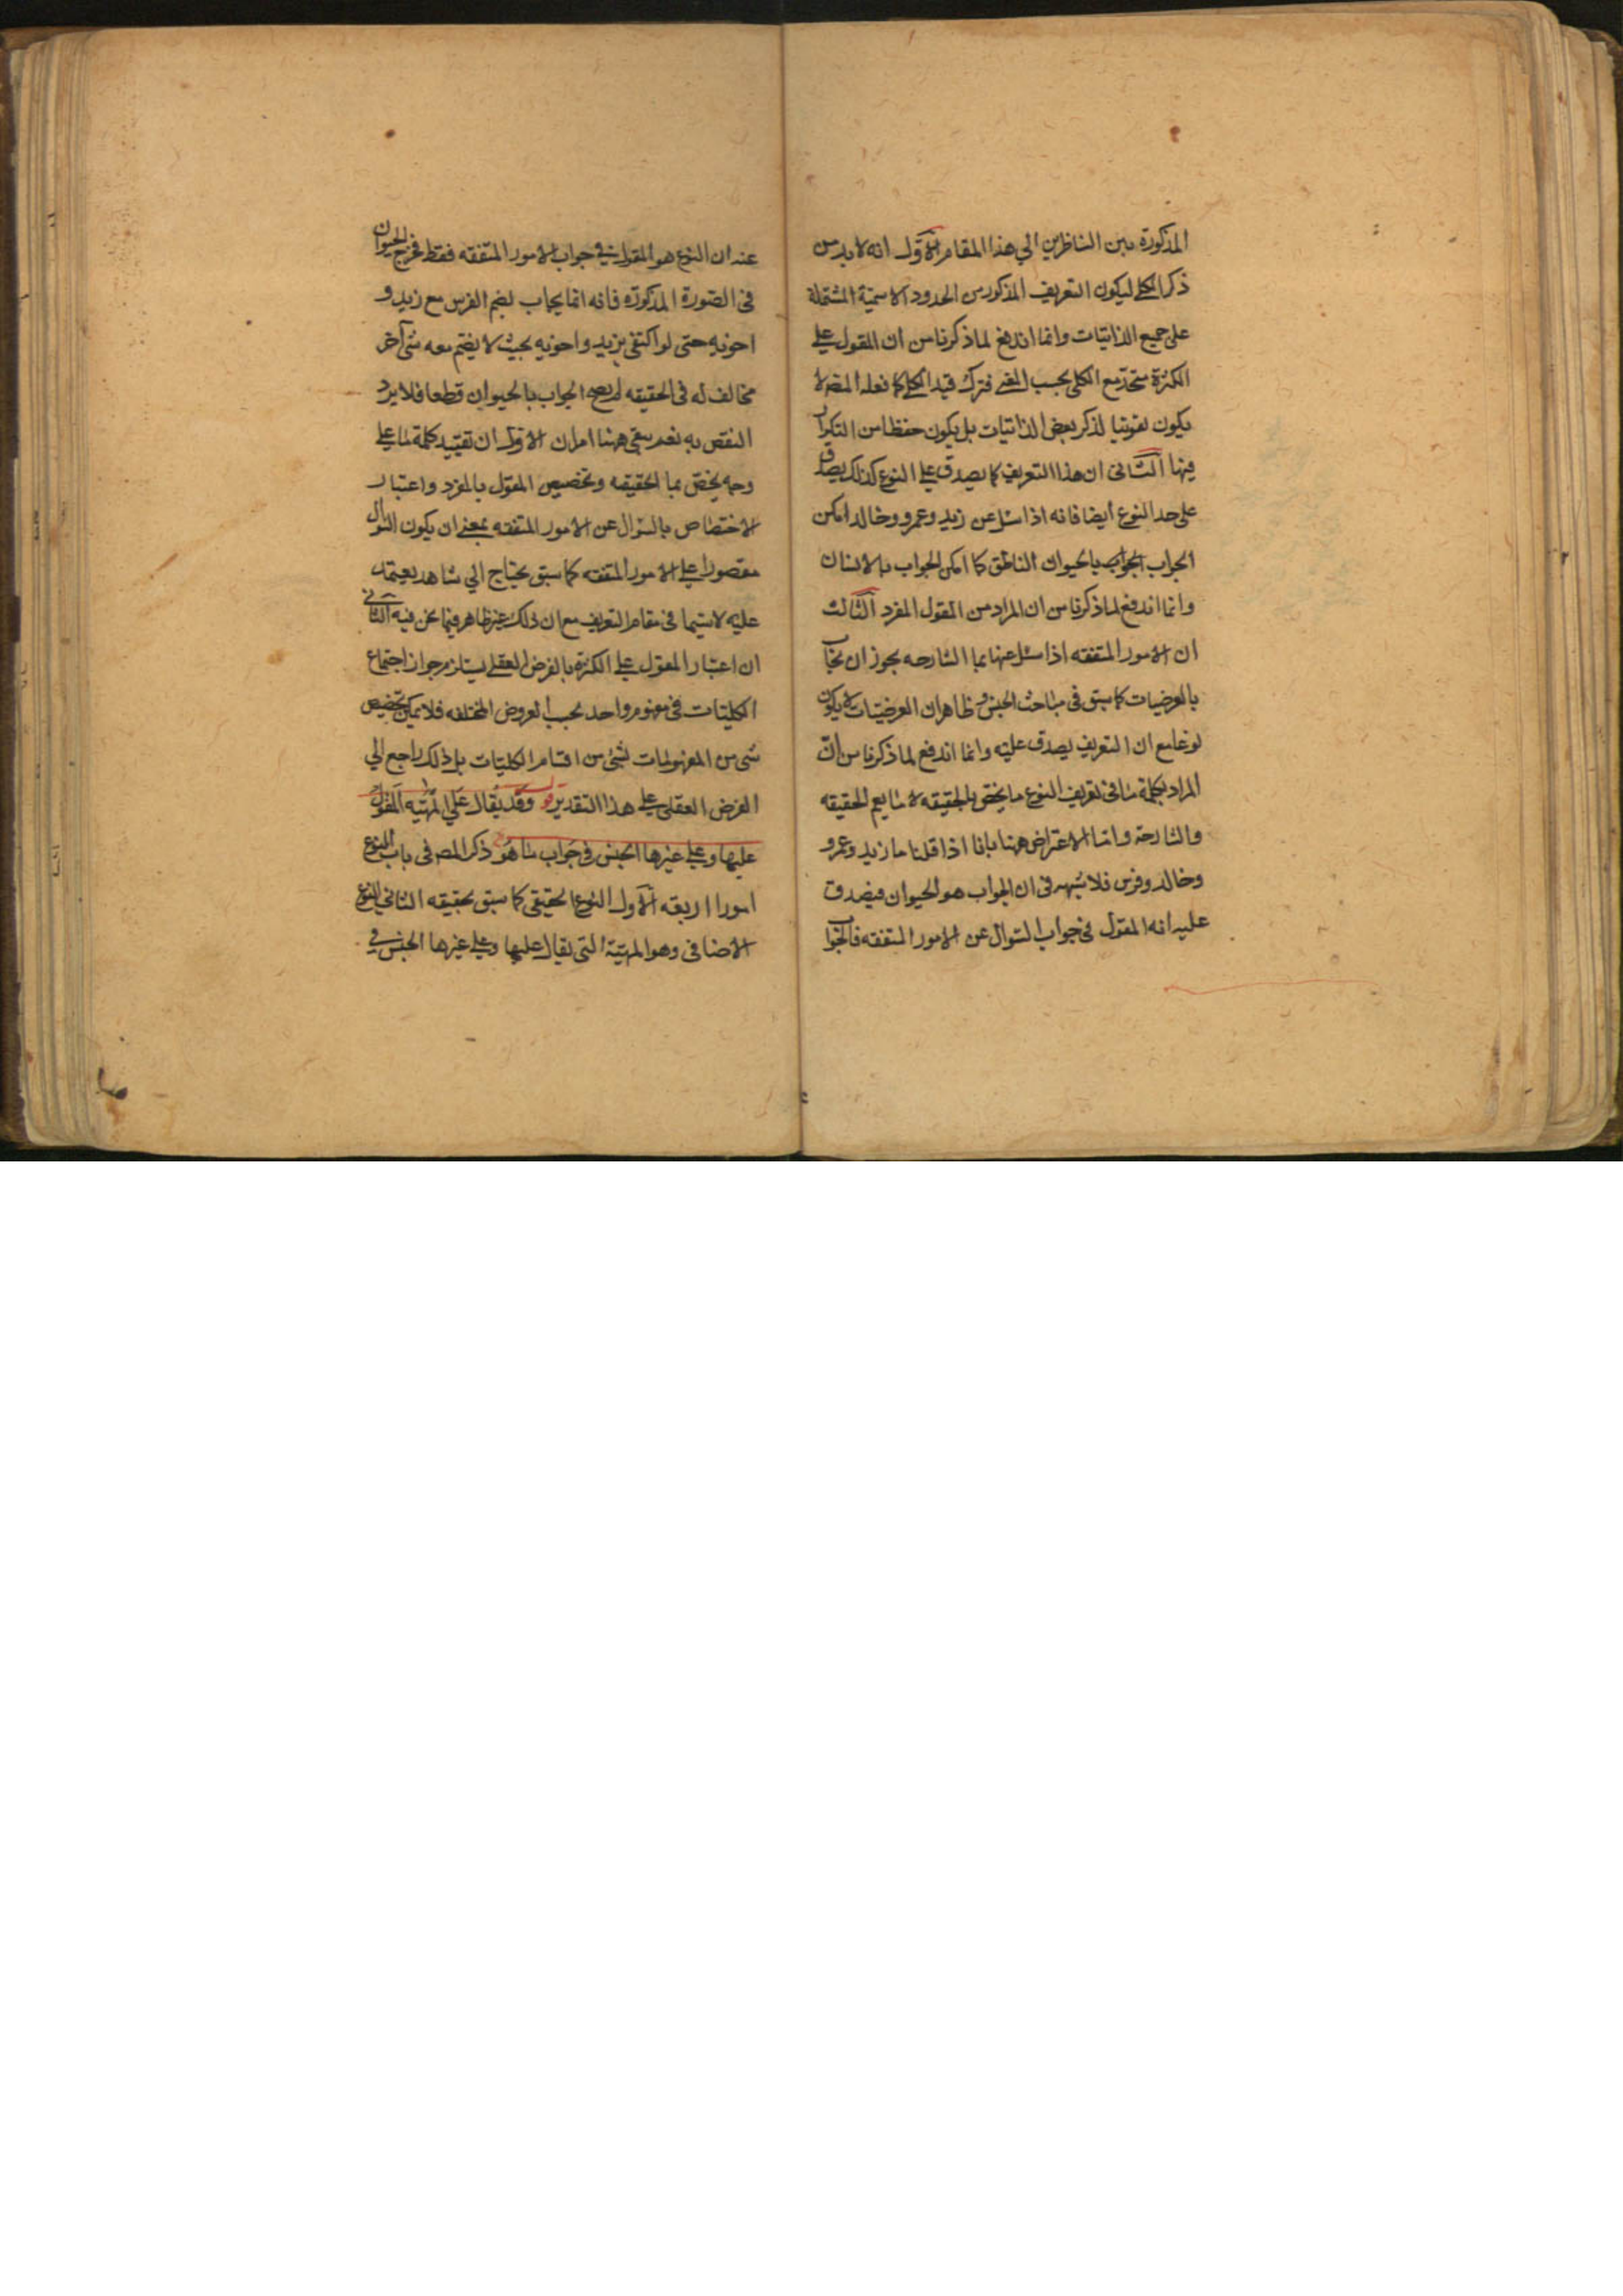 المذكورة بين الناظرين الي هذا المقام الاول انه لا بد من
ذكر الكلي ليكون التعريف المذكور من الحدود الاسمية المشتملة
على جميع الذاتيات وانما اندفع لما ذكرنا من ان المقول علي
الكثرة متحد مع الكلي بحسب المعني فترك قيد الكلي كما فعله المصـ لا
يكون تفويتا لذكر بعض الذاتيات بل يكون حفظا من التكرار
فيها الثاني ان هذا التعريف كما يصدق علي النوع كذلك يصدق
على حد النوع ايضا فانه اذا سئل عن زيد وعمرو وخالد امكن
الجواب الجواب بالحيوان الناطق كما امكن الجواب بالانسان
وانما اندفع لما ذكرنا من ان المراد من المقول المفرد الثالث
ان الامور المتفقه اذا سئل عنها بما الشارحه يجوز ان يجاب
بالعرضيات كما سبق في مباحث الجنس وظاهر ان العرضيات لا يكون
نوعا مع ان التعريف يصدق عليه وانما اندفع لما ذكرنا من ان
المراد بكلمة ما في تعريف النوع ما يختص بالحقيقه لا ما يعم الحقيقه
والشارحة واما الاعتراض ههنا بانا اذا قلنا ما زيد وعمرو
وخالد وفرس فلا شبهه في ان الجواب هو الحيوان فيصدق
عليه انه المقول في جواب السوال عن الامور المتفقه فالجواب
عنه ان النوع هو المقول في جواب الامور المتفقه فقط فخرج الحيوان
في الصورة المذكورة فانه انما يجاب لضم الفرس مع زيد و
اخويه حتى لو اكتفى بزيد واخويه بحيث لا يضم معه شي آخر
مخالف له في الحقيقه لم يصح الجواب بالحيوان قطعا فلا يرد
النقض به نعم بقي ههنا امران الاول ان تقييد كلمة ما علي
وجه يختص بما الحقيقه وتخصيص المقول بالمفرد واعتبار
الاختصاص بالسوال عن الامور المتفقه بمعني ان يكون السوال
مقصورا علي الامور المتفقه كما سبق يحتاج الي شاهد يعتمد
عليه لا سيما في مقام التعريف مع ان ذلك غير ظاهر فيما نحن فيه الثاني
ان اعتبار المقول علي الكثرة بالفرض العقلي يستلزم جواز اجتماع
الكليات في مفهوم واحد بحسب الفروض المختلفه فلا يمكن تخصيص
شي من المفهومات لشي من اقسام الكليات بل ذلك راجع الي
الفرض العقلي علي هذا التقدير وقد يقال علي المهية المقول
عليها وعلي غيرها الجنس في جواب ما هو ذكر المصـ في باب النوع
امورا اربعه الاول النوع الحقيقي كما سبق تحقيقه الثاني النوع
الاضافي وهو المهية التي يقال عليها وعلي غيرها الجنس في